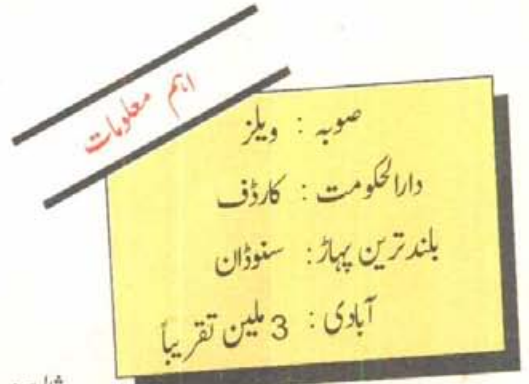 اہم معلومات
صوبہ : ویلز
دارالحکومت : کارڈف
بلند ترین پہاڑ : سنوڈان
آبادی : 3 ملین تقریباً